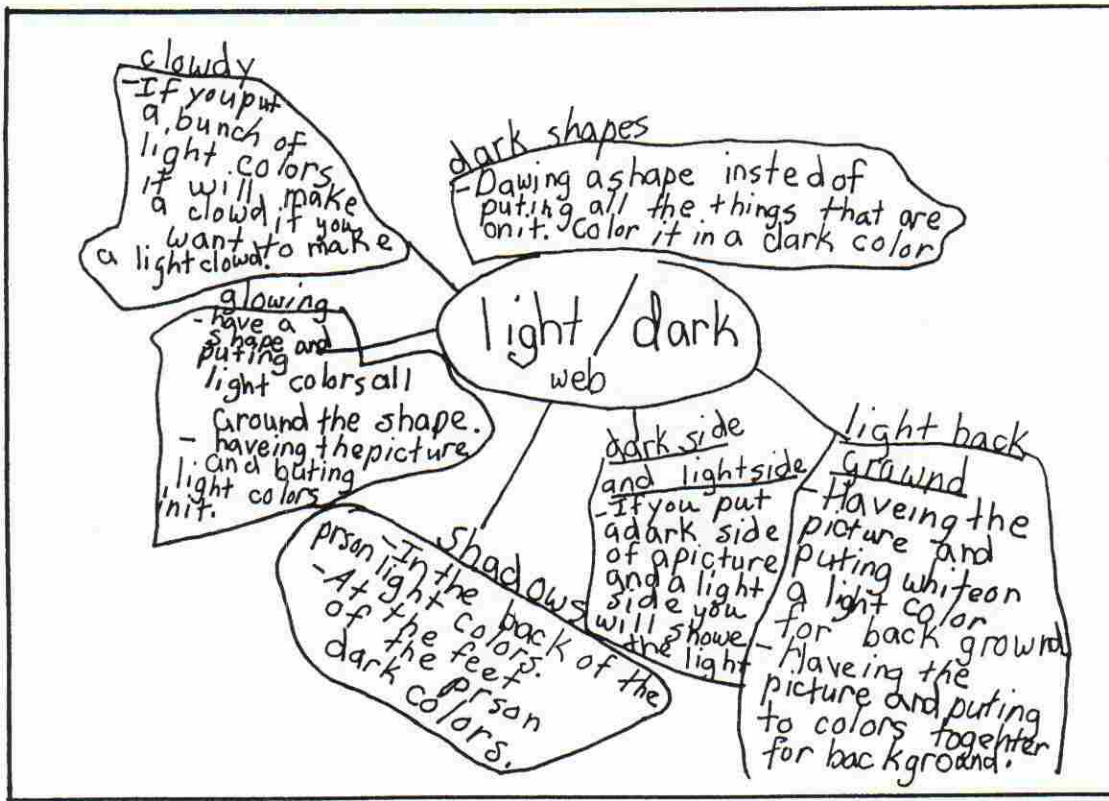 clowdy
-If you put
a bunch of
light colors
it will make
a clowd if you
want to make
a light clowd.
dark shapes
-Dawing a shape insted of
puting all the things that are
on it. Color it in a dark color
light/dark
web
glowing
- have a
shape and
puting
light colors all
Ground the shape.
- haveing the picture
and buting
light colors
init.
shadows
-In the back of the
prson light colors.
-At the feet
of the prson
dark colors.
dark side
and light side
-If you put
a dark side
of a picture
and a light
side you
will showe
the light
light back
grawnd
- Haveing the
picture and
puting white on
a light color
for back grownd
- Haveing the
picture and puting
to colors togehter
for background.